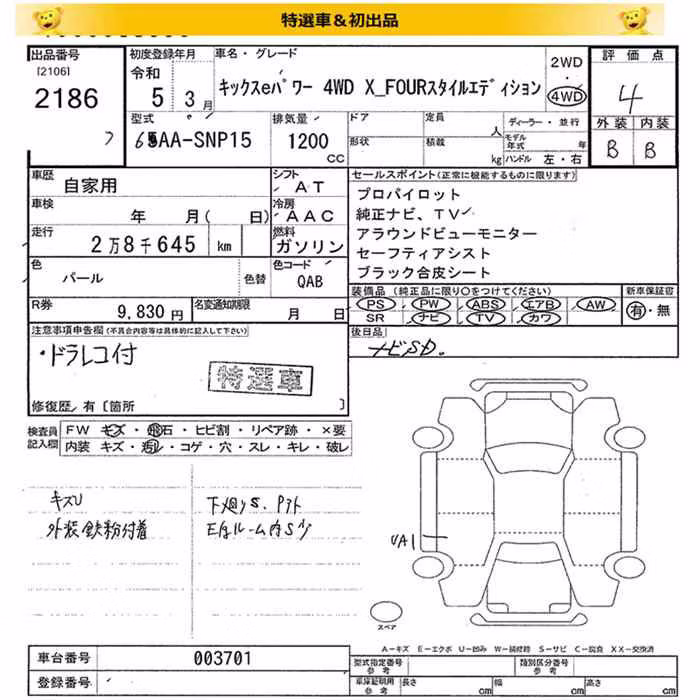 特選車＆初出品
出品番号
[2106]
2186
初度登録年月
令和
5 3月
車名・グレード
キックスeパワー 4WD X_FOURスタイルエディション
2WD
・
4WD
評価点
4
外装 内装
B B
型式
6AA-SNP15
排気量
1200
CC
ドア
形状
定員
人
積載
kg
ディーラー・並行
モデル年式
年
ハンドル 左・右
車歴
自家用
シフト
AT
車検
年 月( 日)
冷房
AAC
走行
2万8千645 km
燃料
ガソリン
色
パール
色替
色コード
QAB
R券
9,830円
名変通知期限
月 日
セールスポイント(正常に機能するものに限ります)
プロパイロット
純正ナビ、TV
アラウンドビューモニター
セーフティアシスト
ブラック合皮シート
装備品 (純正品に限り○をつけてください)
PS PW ABS エアB AW
SR ナビ TV カワ
新車保証書
有・無
注意事項申告欄(不具合内容等は具体的に記入して下さい)
・ドラレコ付
特選車
修復歴/有〔箇所 〕
後日品
ナビSD.
検査員記入欄
FW キズ・飛石・ヒビ割・リペア跡・×要
内装 キズ・汚レ・コゲ・穴・スレ・キレ・破レ
キズU
外装鉄粉付着
下廻りS.
UA1
スペア
A－キズ E－エクボ U－凹み W－補修跡 S－サビ C－腐食 XX－交換済
車台番号
003701
登録番号
型式指定番号
参考
類別区分番号
参考
車庫証明用
参考
長さ cm 幅 cm 高さ cm